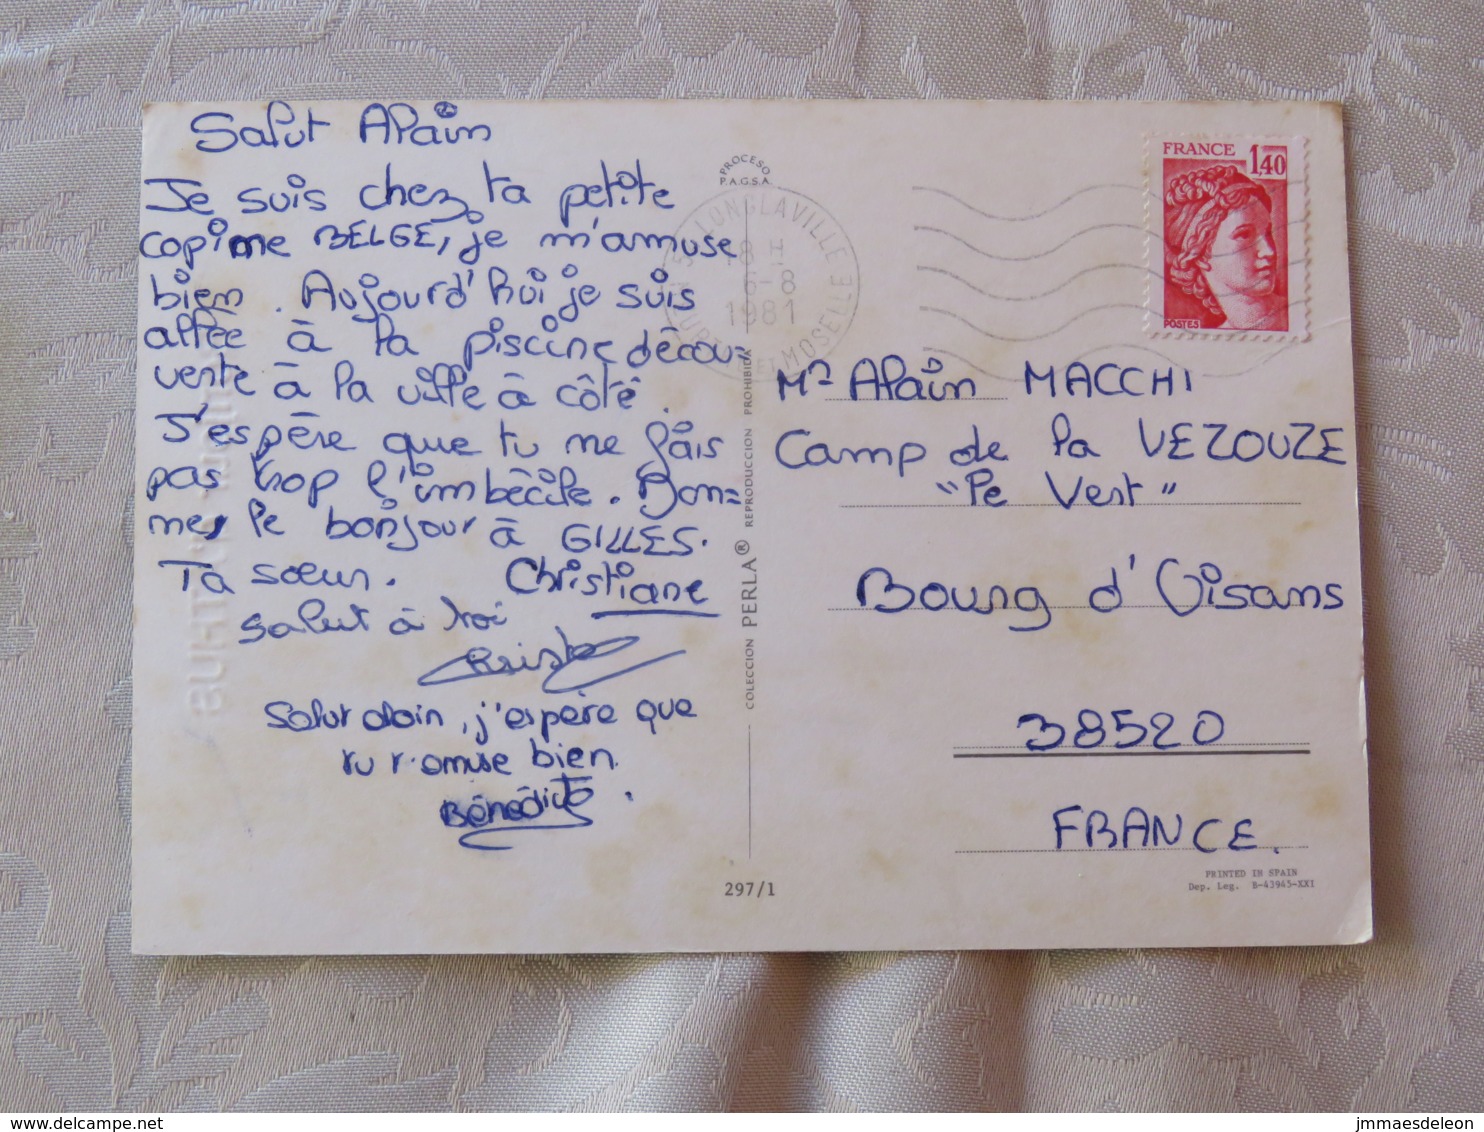 Salut Alain
Je suis chez ta petite
copine BELGE, je m'amuse
bien. Aujourd'hui je suis
allée à la piscine décou=
verte à la ville à côté.
J'espère que tu ne fais
pas trop l'imbécile. Don=
nes le bonjour à GILLES.
Ta sœur. Christiane
Salut à toi
Salut alain, j'espère que
tu t'amuse bien.
Bénédicte.
PROCESO
P.A.G.S.A.
COLECCION PERLA® REPRODUCCION PROHIBIDA
297/1
54 LONGLAVILLE
18 H
6-8
1981
MEURTHE ET MOSELLE
FRANCE 1,40
POSTES
Mr Alain MACCHI
Camp de la VEZOUZE
"Le Vert"
Bourg d'Oisans
38520
FRANCE.
PRINTED IN SPAIN
Dep. Leg. B-43945-XXI
www.delcampe.net
jmmaesdeleon